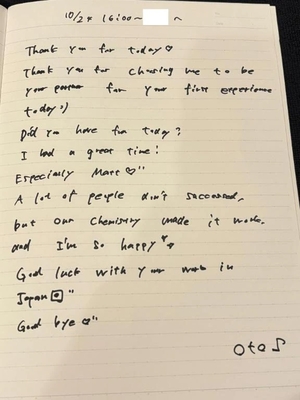 10/24 16:00~ ~
Thank you for today♡
Thank you for choosing me to be
your partner for your first experience
today:)
Did you have fun today?
I had a great time!
Especially ♡"
A lot of people don't succeed,
but our chemistry made it work.
and I'm so happy♡
Good luck with your work in
Japan🇯🇵"
Good bye ♡"